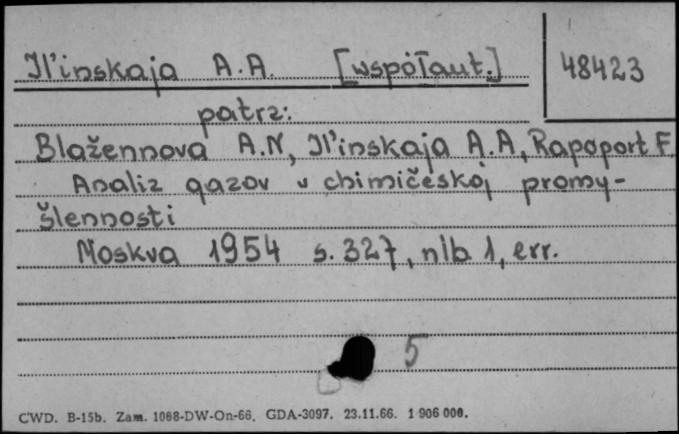 Il'inskaja A.A. [współaut.] 48423
patrz:
Blažennova A.N, Il'inskaja A.A, Rapoport F.
Analiz gazov v chimičeskoj promy-
šlennosti
Moskva 1954 s. 327, nlb 1, err.
5
CWD. B-15b. Zam. 1088-DW-On-66. GDA-3097. 23.11.66. 1 906 000.